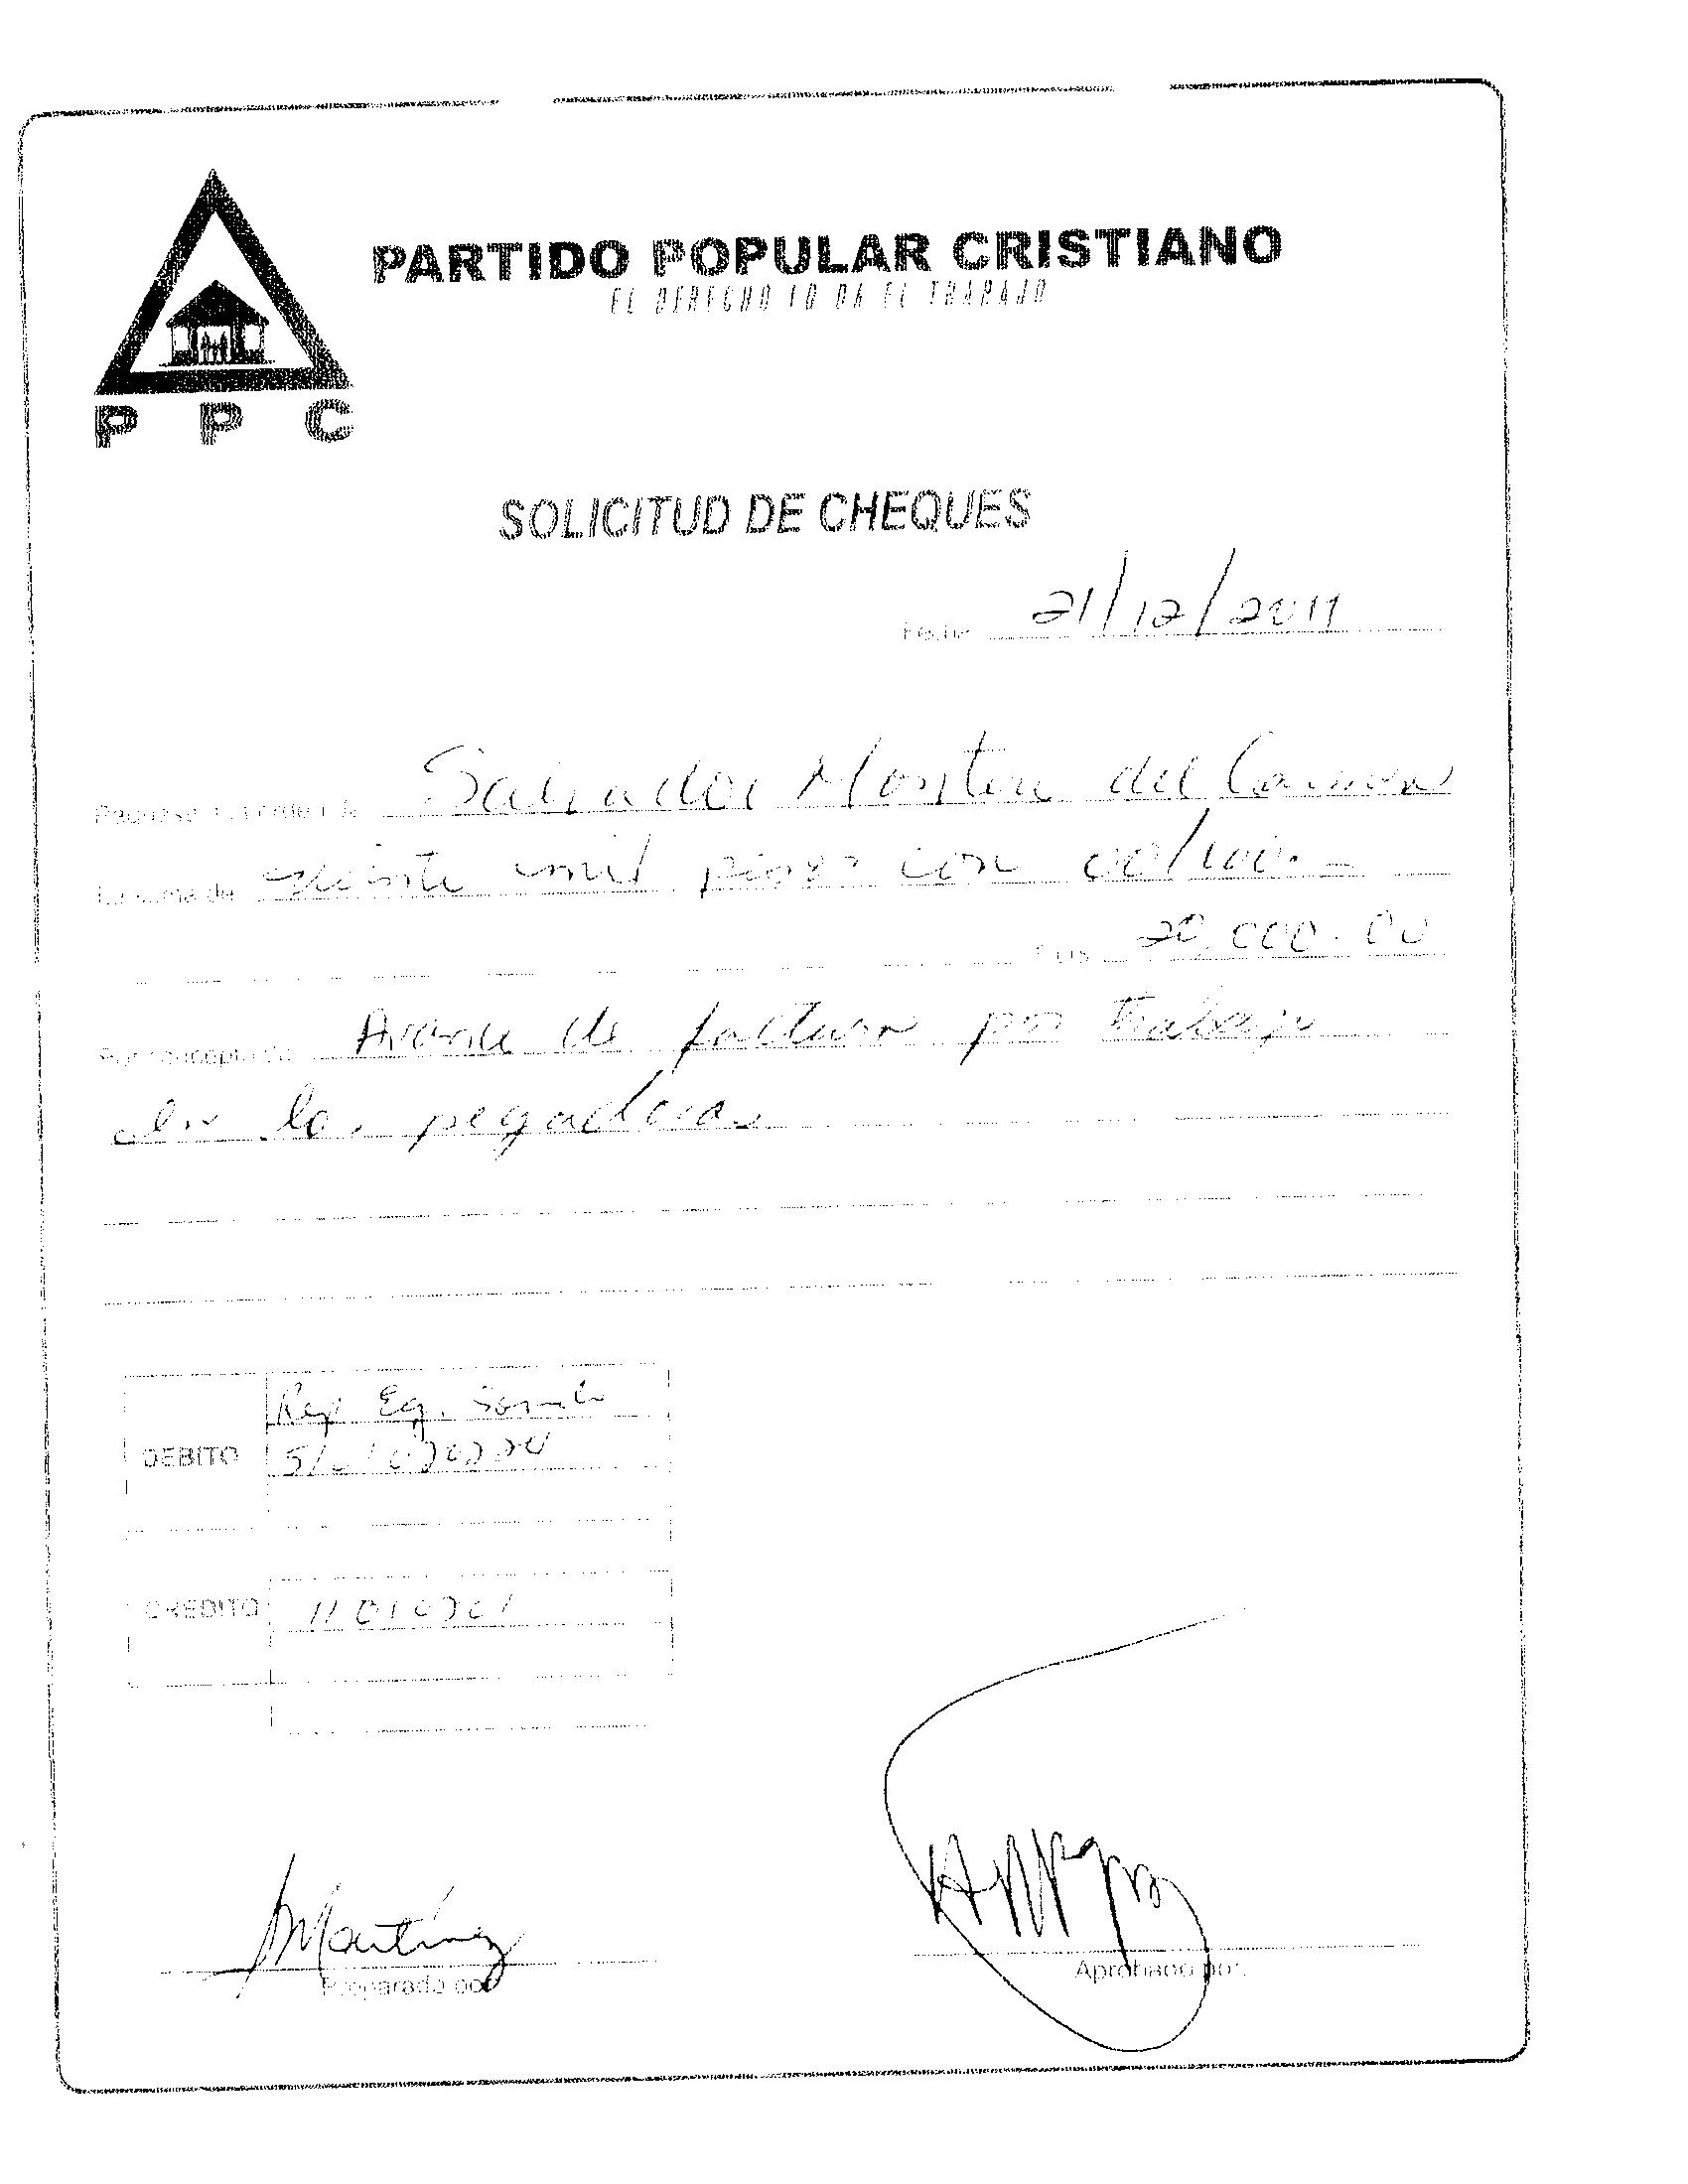 PARTIDO POPULAR CRISTIANO
EL DERECHO LO DA EL TRABAJO
P P C
SOLICITUD DE CHEQUES
Fecha 21/12/2011
Páguese a la orden de Salvador Montero del Carmen
La suma de veinte mil pesos con 00/100.-
20,000.00
Por concepto de Avance de factura por trabajo
en la pegaderas
Rep Eq.
DEBITO
CREDITO
Martínez
Preparado por
Aprobado por: